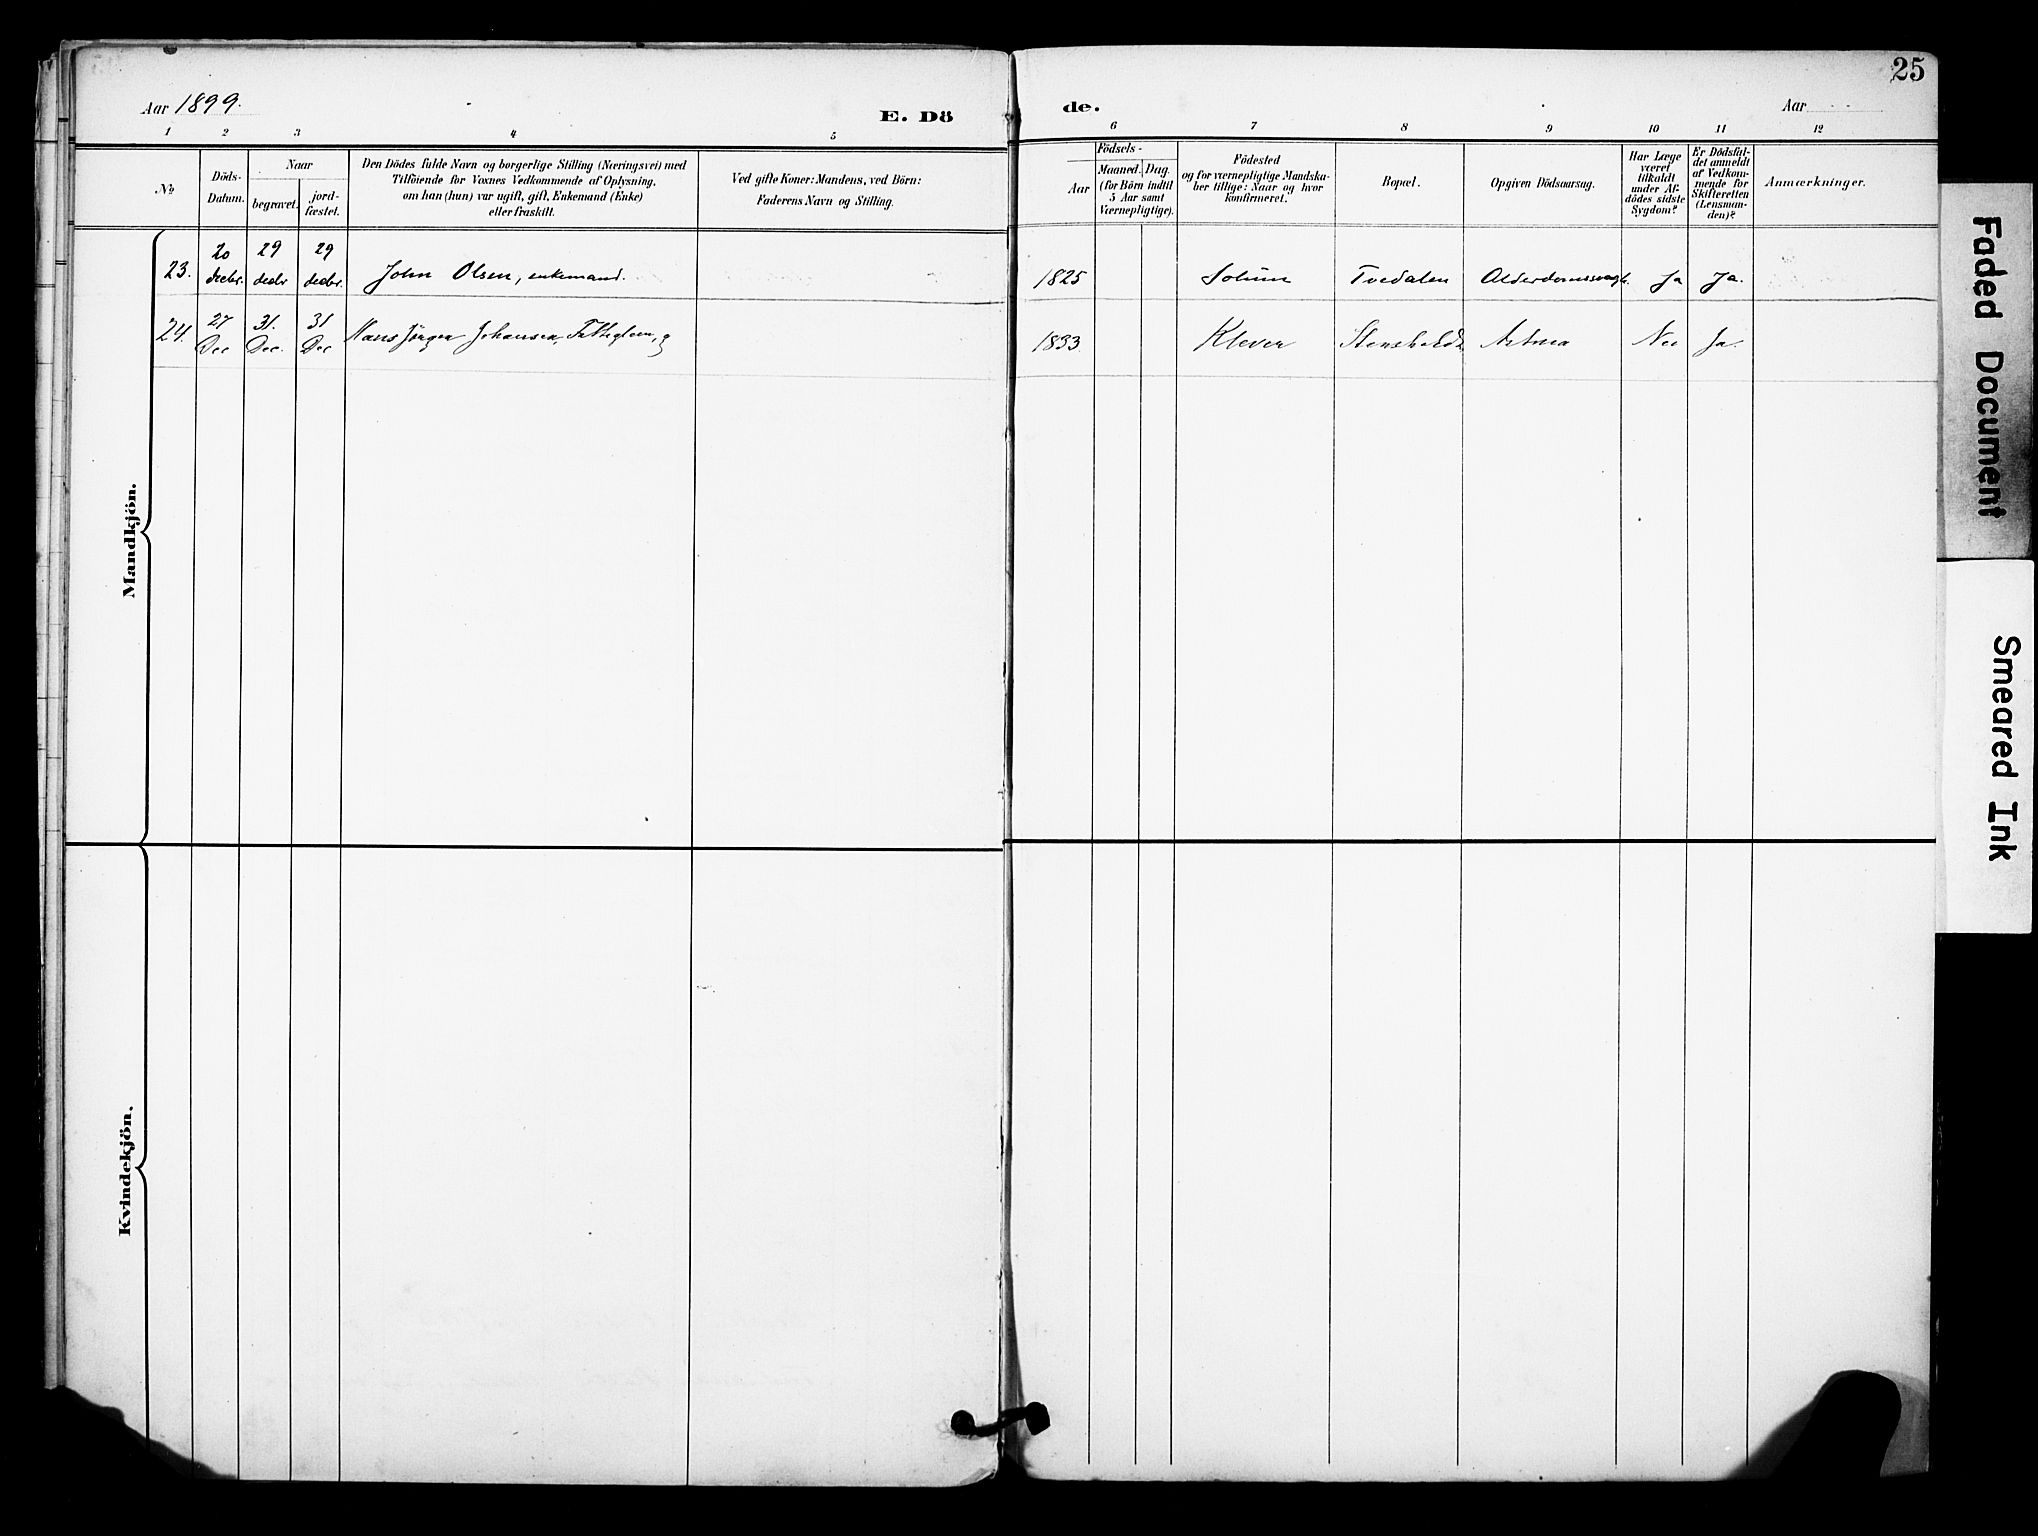 25
Aar 1899.
E. Dö
de.
Aar
1 2 3 4 5 6 7 8 9 10 11 12
No
Döds-
Datum.
Naar
begravet.
jord-
fæstet.
Den Dödes fulde Navn og borgerlige Stilling (Næringsvei) med
Tilföiende for Voxnes Vedkommende af Oplysning,
om han (hun) var ugift, gift, Enkemand (Enke)
eller fraskilt.
Ved gifte Koner: Mandens, ved Börn:
Faderens Navn og Stilling.
Födsels-
Aar
Maaned. Dag.
(for Börn indtil
5 Aar samt
Værnepligtige).
Födested
og for værnepligtige Mandska-
ber tillige: Naar og hvor
konfirmeret.
Bopæl.
Opgiven Dödsaarsag.
Har Læge
været
tilkaldt
under Af-
dödes sidste
Sygdom?
Er Dödsfal-
det anmeldt
af Vedkom-
mende for
Skifteretten
(Lensman-
den)?
Anmærkninger.
Mandkjön.
23. 20 decbr. 29 decbr 29 decbr. John Olsen, enkemand. 1825 Solum Tvedalen Alderdomssvagh. Ja Ja.
24. 27 Dec 31. Dec. 31 Dec Hans Jörgen Johansen, Fattiglem, g 1833 Klever Stensholdt Astma Nei Ja.
Kvindekjön.
Faded Document
Smeared Ink